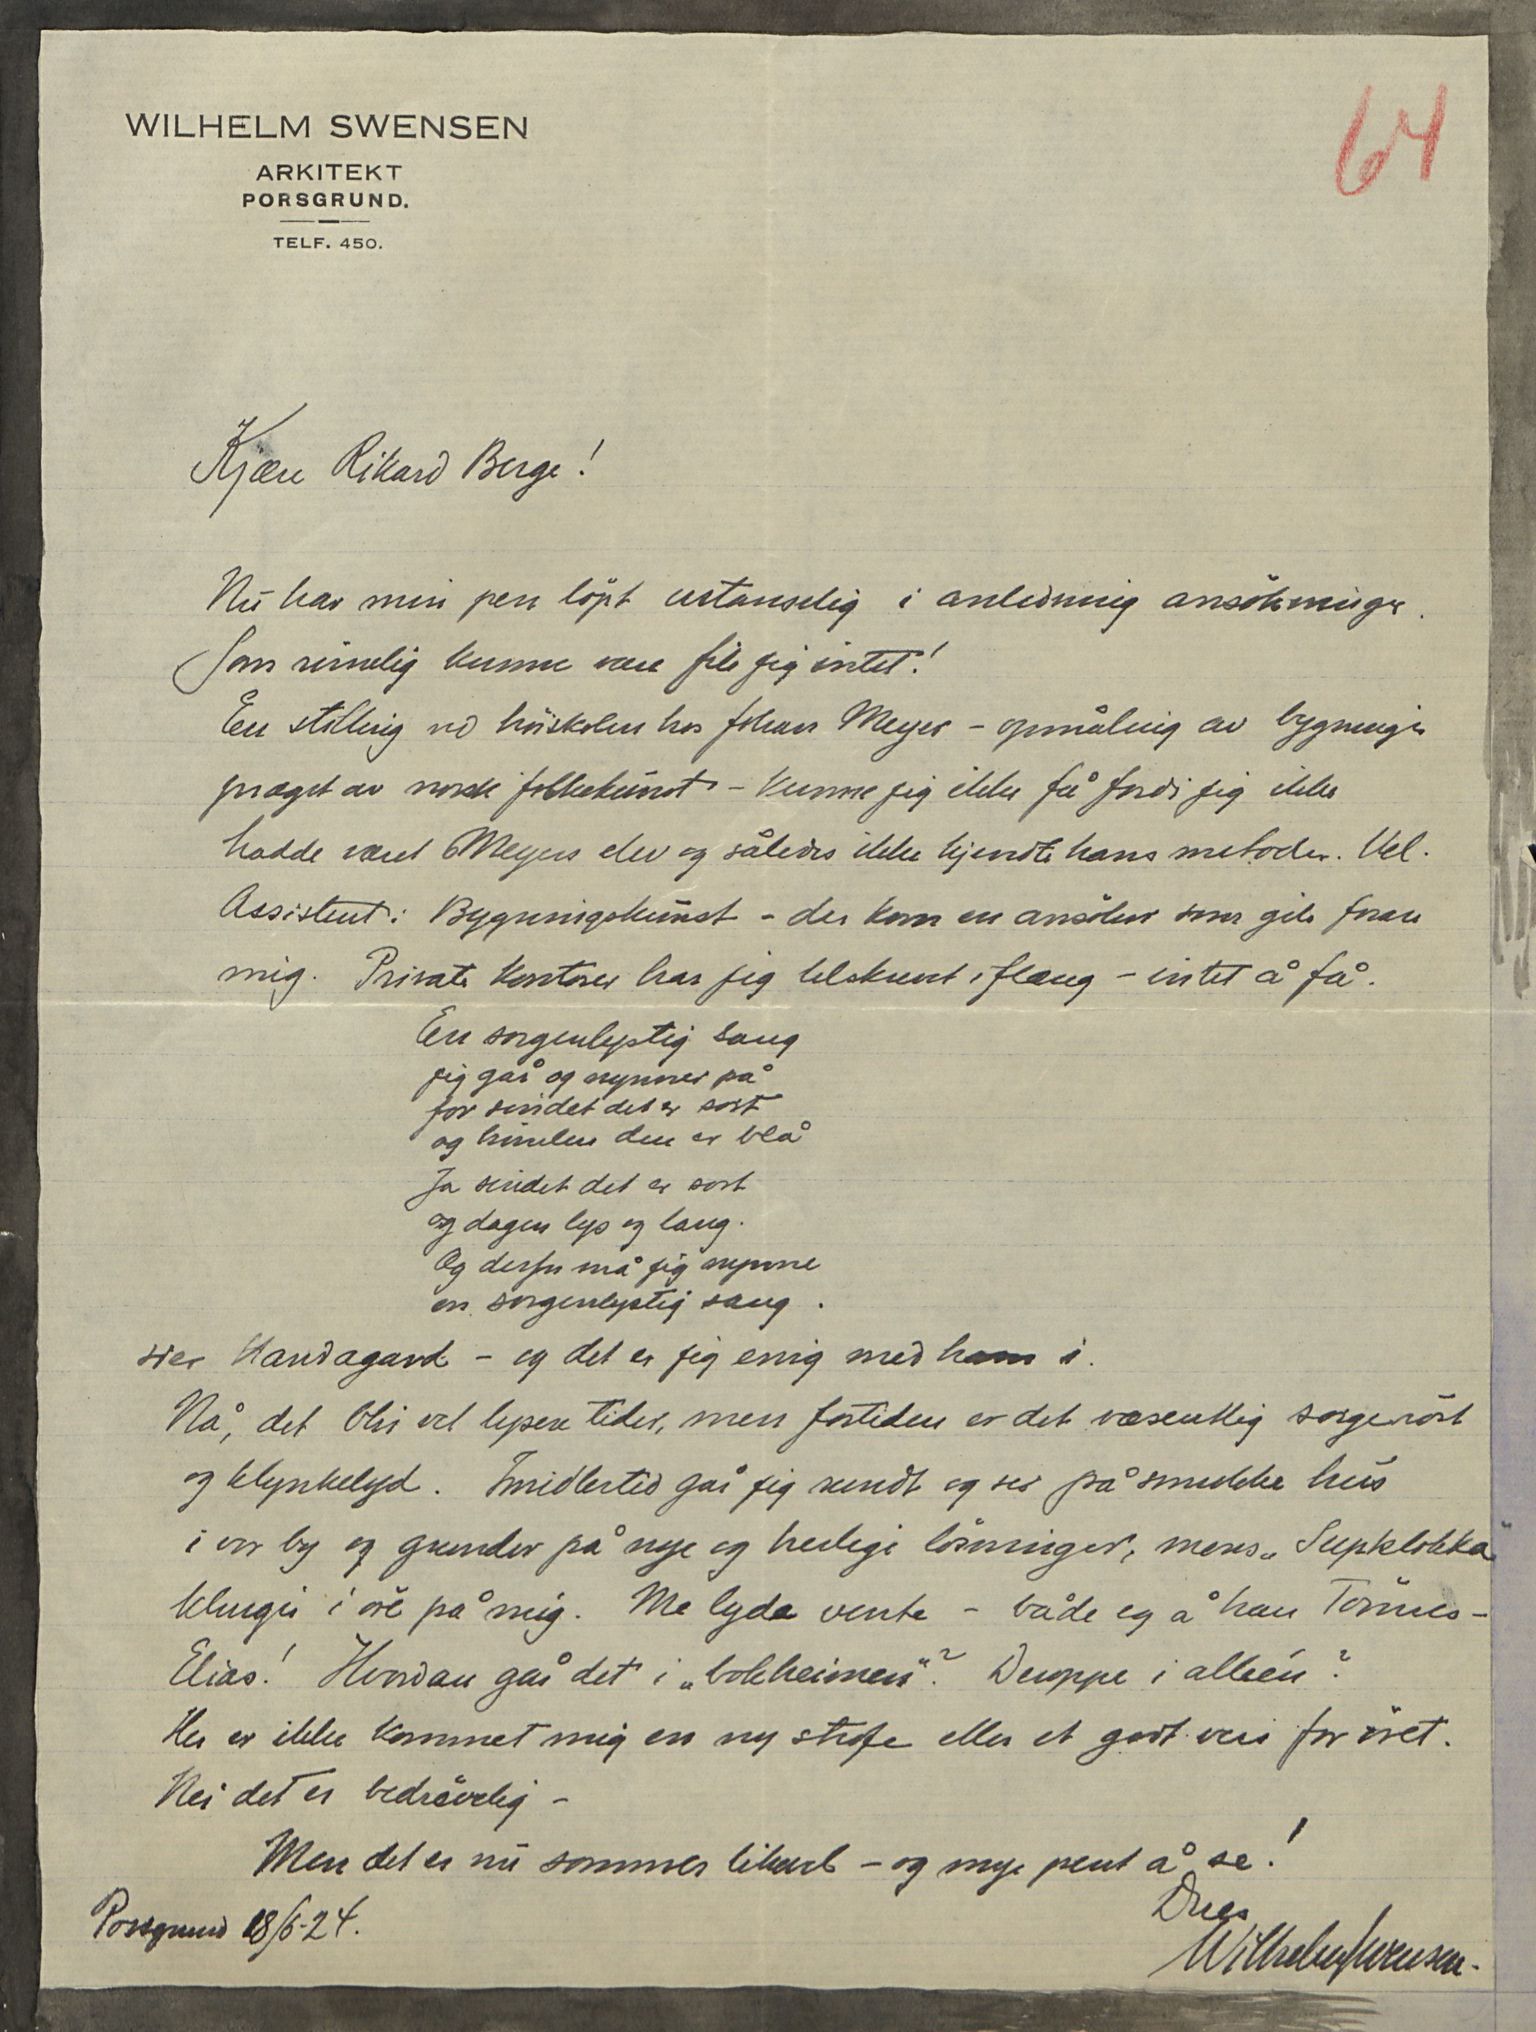 WILHELM SWENSEN
64
ARKITEKT
PORSGRUND.
TELF. 450.
Kjære Rikard Berge!
Nu har min pen löpt ustanselig i anledning ansökninger.
Som rimelig kunne være fik jeg intet!
En stilling ved höiskolen hos Johan Meyer - opmåling av bygninger
præget av norsk folkekunst - kunne jeg ikke få fordi jeg ikke
hadde været Meyers elev og således ikke kjendte hans metoder. Vel.
Assistent i Bygningskunst - der kom en ansöker som gik foran
mig. Private kontorer har jeg tilskrevet i flæng - intet å få.
En sorgenlystig sang
jeg går og nynner på
for sindet det er sort
og himlen den er blå
Ja sindet det er sort
og dagen lys og lang.
Og derfor må jeg nynne
en sorgenlystig sang.
sier Handagard - og det er jeg enig med ham i.
Nå, det blir vel lysere tider, men fortiden er det væsentlig sorgenröst
og klynkelyd. Imidlertid går jeg rundt og ser på smukke hus
i vor by og grunder på nye og herlige lösninger, mens „Supklokka"
klinger i öre på mig. Me lyda venta - både eg å han Tönnes-
Elias! Hvordan går det i „bokheimen"? Druppe i alléen?
Her er ikke kommet mig en ny strofe eller et godt vers for öret.
Nei det er bedrövelig -
Men det er nu sommer likevel - og mye pent å se!
Porsgrund 18/6-24.
Deres
Wilhelm Swensen.